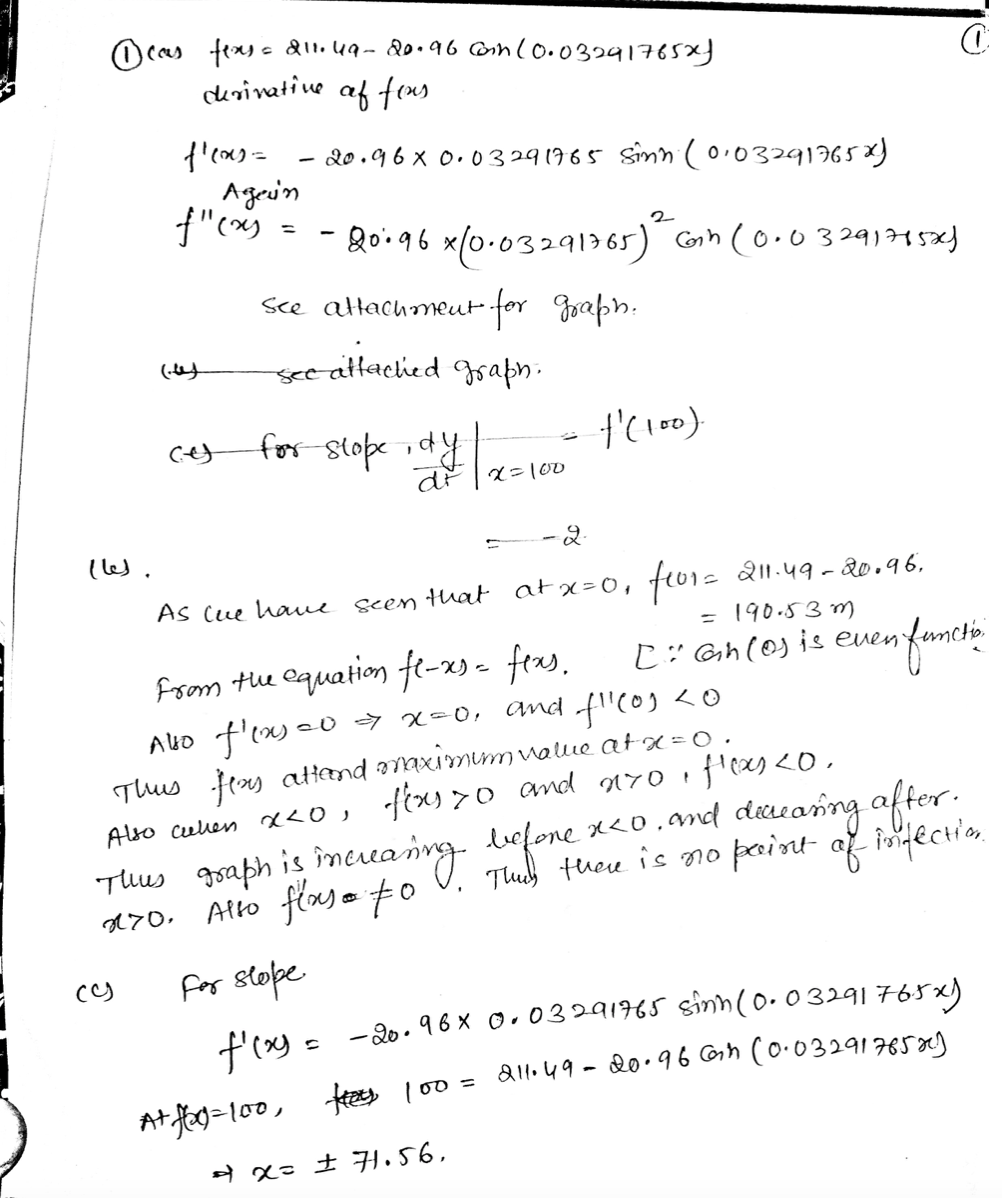 ①
① (a) f(x) = 211.49 - 20.96 cosh (0.03291765x)
derivative of f(x)
f'(x) = - 20.96 × 0.03291765 sinh (0.03291765x)
Again
f''(x) = - 20.96 × (0.03291765)² cosh (0.03291765x)
see attachment for graph.
(b) see attached graph.
(c) for slope, dy/dt |x=100 = f'(100)
= -2
(b).
As we have seen that at x=0, f(0) = 211.49 - 20.96.
= 190.53 m
From the equation f(-x) = f(x). [∵ cosh(0) is even functio
Also f'(x) = 0 ⇒ x=0, and f''(0) < 0
Thus f(x) attend maximum value at x=0.
Also when x<0, f'(x) > 0 and x>0, f'(x) < 0.
Thus graph is increasing before x<0. and decreasing after.
x>0. Also f''(x) ≠ 0. Thus there is no point of inflection.
(c) For slope
f'(x) = -20.96 × 0.03291765 sinh (0.03291765x)
At f(x)=100, 100 = 211.49 - 20.96 cosh (0.03291765x)
⇒ x = ± 71.56.